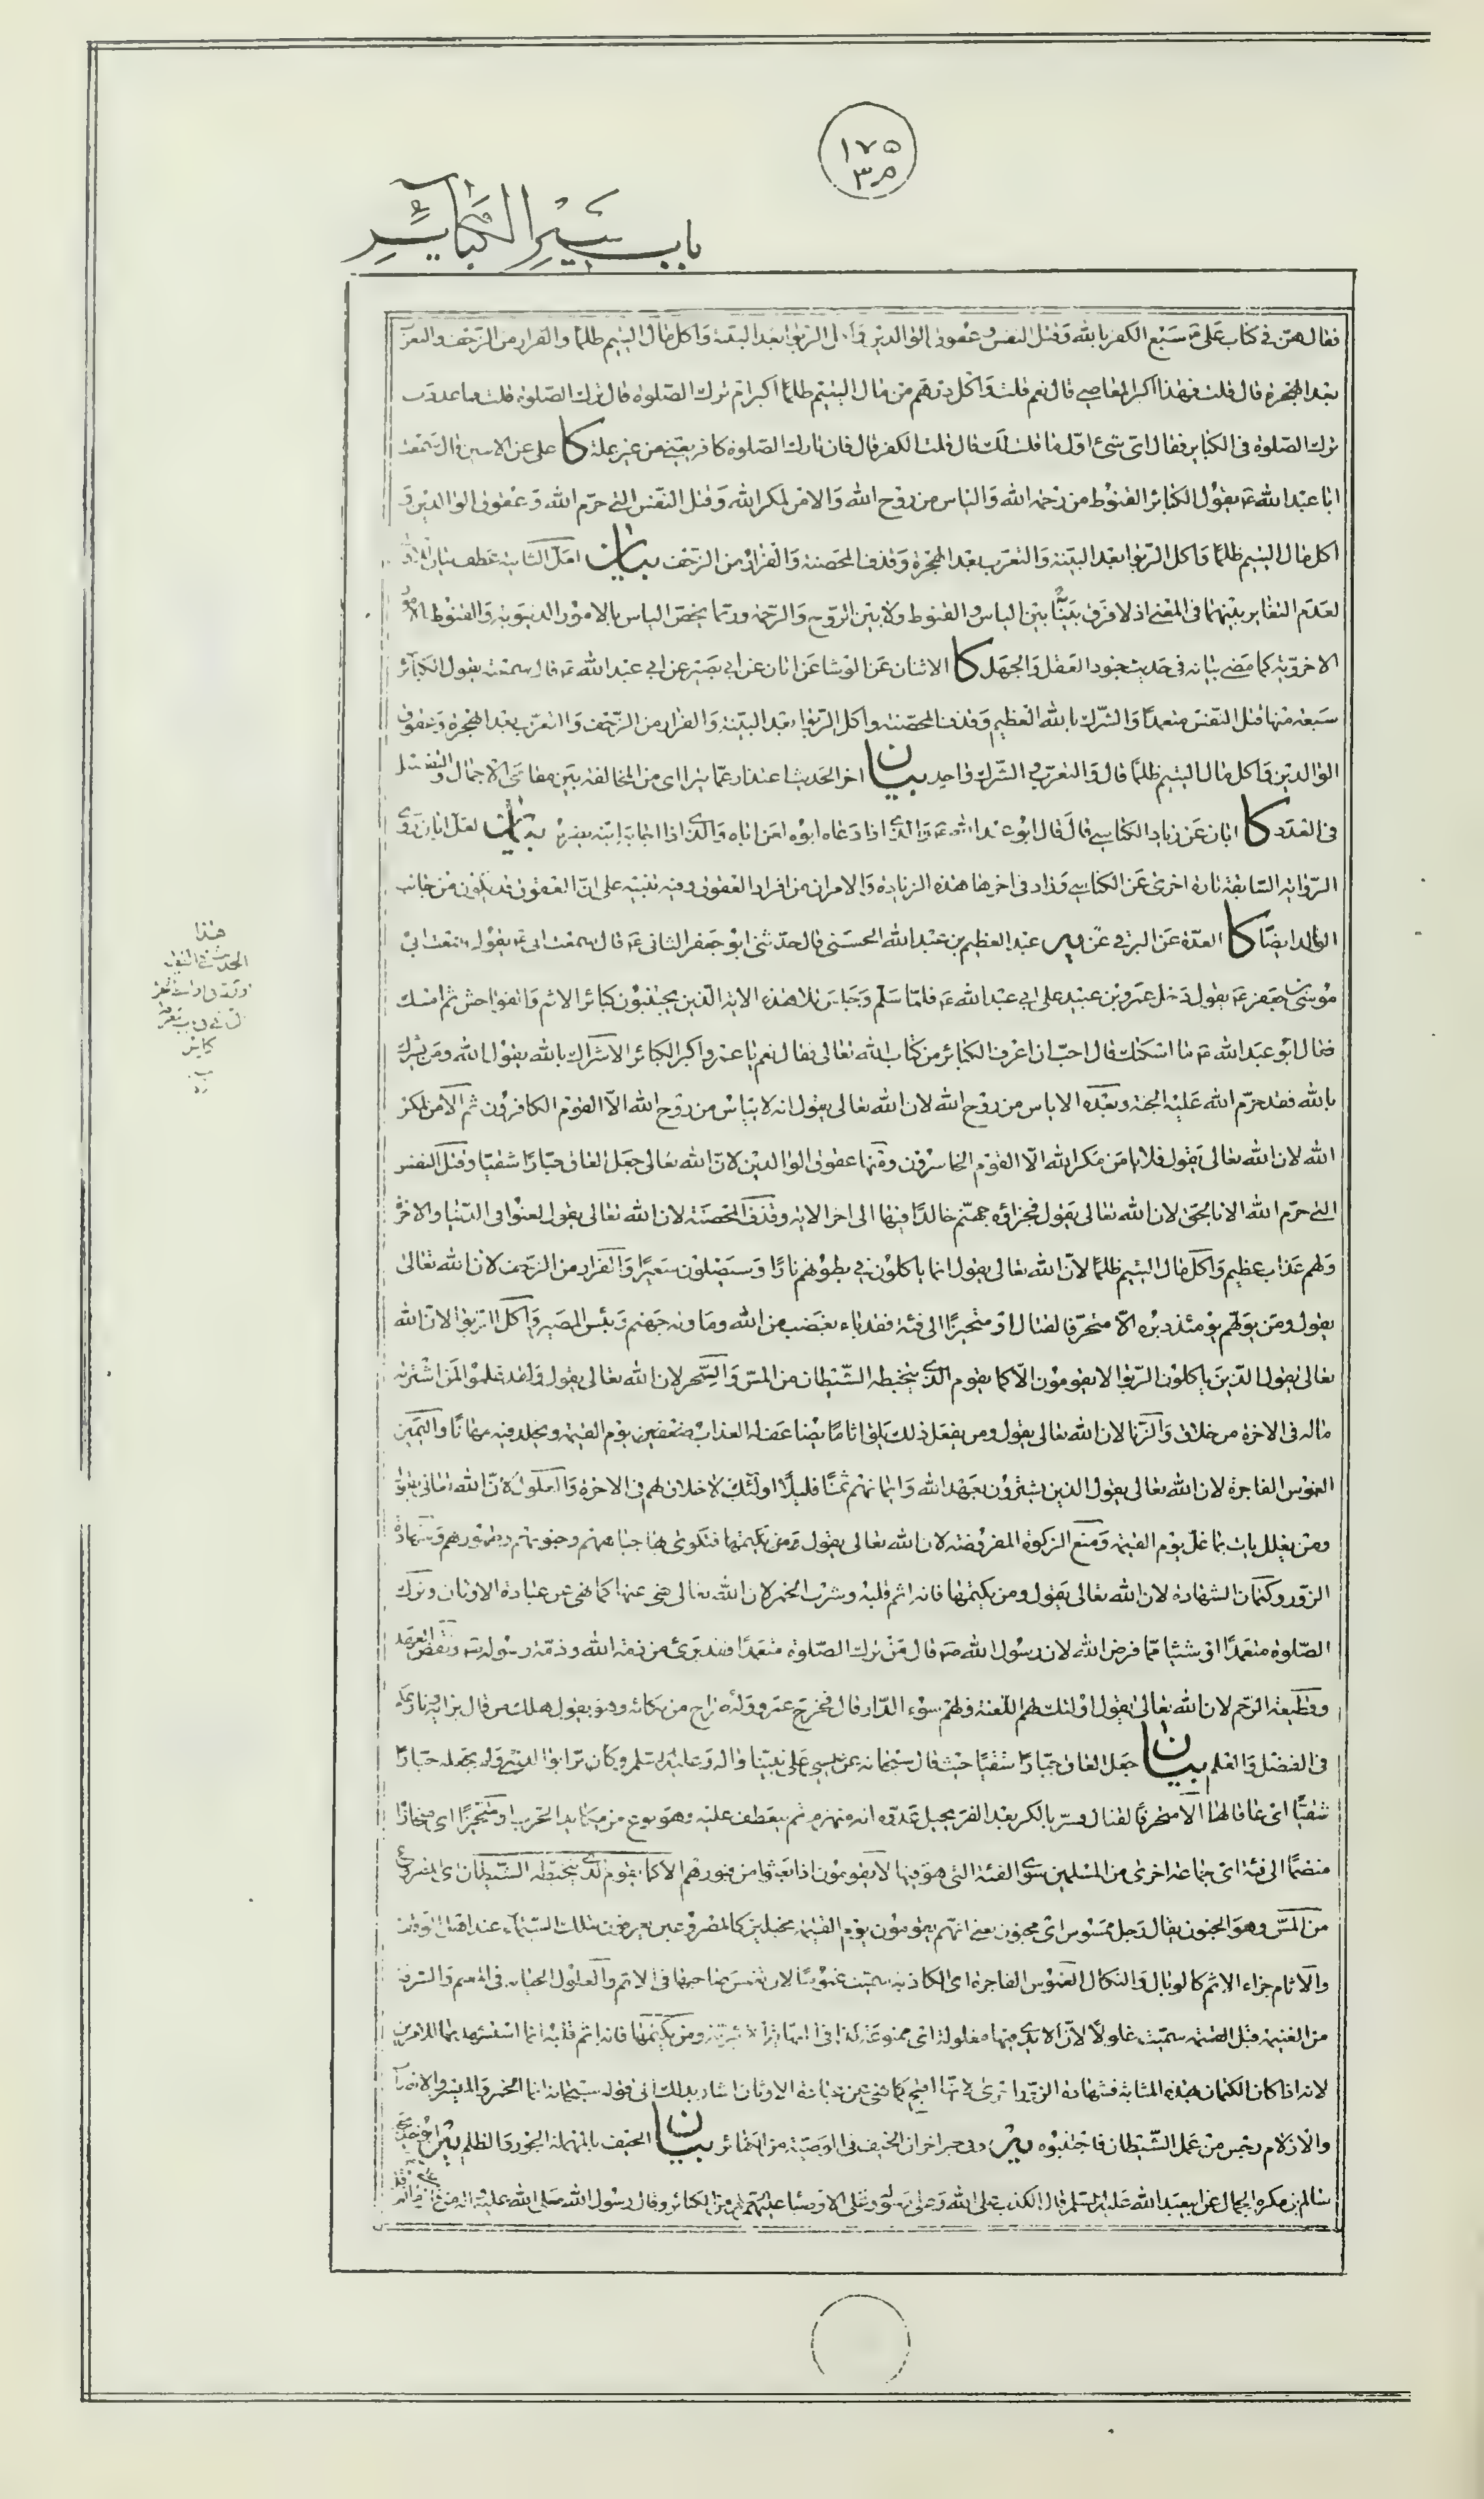 ١٧٥
٣م
باب تفسير الكبائر
فقال هن في كتاب علي ع سبع الكفر بالله وقتل النفس وعقوق الوالدين واكل الربوا بعد البينة واكل مال اليتيم ظلما والفرار من الزحف والتعرب
بعد الهجرة قال قلت فهذا اكبر المعاصي قال نعم قلت فاكل درهم من مال اليتيم ظلما اكبر ام ترك الصلوة قال ترك الصلوة قلت فما عددت
ترك الصلوة في الكبائر فقال اي شئ اول ما قلت لك قال قلت الكفر قال فان تارك الصلوة كافر يعني من غير علة كا علي عن الاثنين قال سمعت
ابا عبد الله ع يقول الكبائر القنوط من رحمة الله والياس من روح الله والامن لمكر الله وقتل النفس التي حرم الله وعقوق الوالدين و
اكل مال اليتيم ظلما واكل الربوا بعد البينة والتعرب بعد الهجرة وقذف المحصنة والفرار من الزحف بيان لعل الثانية عطف بيان للاولى
لعدم التغاير بينهما في المعنى اذ لا فرق بينا بين الياس والقنوط ولا بين الروح والرحمة وربما يخص الياس بالامور الدنيوية والقنوط بالامور
الاخروية كما مضى بيانه في حديث جنود العقل والجهل كا الاثنان عن الوشا عن ابان عن ابي بصير عن ابي عبد الله ع قال سمعته يقول الكبائر
سبعة منها قتل النفس متعمدا والشرك بالله العظيم وقذف المحصنة واكل الربوا بعد البينة والفرار من الزحف والتعرب بعد الهجرة وعقوق
الوالدين واكل مال اليتيم ظلما قال والتعرب والشرك واحد بيان اخر الحديث اعتذار عما يترااى من المخالفة بين مقامي الاجمال والتفصيل
في العدد كا ابان عن زياد الكناسي قال قال ابو عبد الله ع والذي اذا دعاه ابوه لعن اباه والذي اذا اجابه ابنه يضربه بيان لعل ابان روى
الرواية السابقة تارة اخرى عن الكناسي وزاد في اخرها هذه الزيادة والامران من افراد العقوق وفيه تنبيه على ان العقوق قد يكون من جانب
الوالد ايضا كا العدة عن البرقي عن يه عبد العظيم بن عبد الله الحسني قال حدثني ابو جعفر الثاني ع قال سمعت ابي ع يقول سمعت ابي
موسى بن جعفر ع يقول دخل عمرو بن عبيد على ابي عبد الله ع فلما سلم وجلس تلا هذه الاية الذين يجتنبون كبائر الاثم والفواحش ثم امسك
فقال ابو عبد الله ع ما اسكتك قال احب ان اعرف الكبائر من كتاب الله تعالى فقال نعم يا عمرو اكبر الكبائر الاشراك بالله يقول الله ومن يشرك
بالله فقد حرم الله عليه الجنة وبعده الاياس من روح الله لان الله تعالى يقول انه لا ييأس من روح الله الا القوم الكافرون ثم الامن لمكر
الله لان الله تعالى يقول فلا يامن مكر الله الا القوم الخاسرون ومنها عقوق الوالدين لان الله تعالى جعل العاق جبارا شقيا وقتل النفس
التي حرم الله الا بالحق لان الله تعالى يقول فجزاؤه جهنم خالدا فيها الى اخر الاية وقذف المحصنة لان الله تعالى يقول لعنوا في الدنيا والاخرة
ولهم عذاب عظيم واكل مال اليتيم ظلما لان الله تعالى يقول انما ياكلون في بطونهم نارا وسيصلون سعيرا والفرار من الزحف لان الله تعالى
يقول ومن يولهم يومئذ دبره الا متحرفا لقتال او متحيزا الى فئة فقد باء بغضب من الله وماويه جهنم وبئس المصير واكل الربوا لان الله
تعالى يقول الذين ياكلون الربوا لا يقومون الا كما يقوم الذي يتخبطه الشيطان من المس والسحر لان الله تعالى يقول ولقد علموا لمن اشتريه
ماله في الاخرة من خلاق والزنا لان الله تعالى يقول ومن يفعل ذلك يلق اثاما يضاعف له العذاب ضعفين يوم القيمة ويخلد فيه مهانا واليمين
الغموس الفاجرة لان الله تعالى يقول الذين يشترون بعهد الله وايمانهم ثمنا قليلا اولئك لا خلاق لهم في الاخرة والغلول لان الله تعالى يقول
ومن يغلل يات بما غل يوم القيمة ومنع الزكوة المفروضة لان الله تعالى يقول فتكوى بها جباههم وجنوبهم وظهورهم وشهادة
الزور وكتمان الشهادة لان الله تعالى يقول ومن يكتمها فانه اثم قلبه وشرب الخمر لان الله تعالى نهى عنها كما نهى عن عبادة الاوثان وترك
الصلوة متعمدا او شيئا مما فرض الله لان رسول الله ص قال من ترك الصلوة متعمدا فقد برئ من ذمة الله وذمة رسوله ص ونقض العهد
وقطيعة الرحم لان الله تعالى يقول اولئك لهم اللعنة ولهم سوء الدار قال فخرج عمرو وله صراخ من بكائه وهو يقول هلك من قال برايه ونازعكم
في الفضل والعلم بيان جعل العاق جبارا شقيا حيث قال سبحانه عن عيسى على نبينا واله وعليه السلم وكان برا بوالديه ولم يجعله جبارا
شقيا اي عاقا لها الا متحرفا لقتال وسر بالكر بعد الفر يخيل عدوه انه منهزم ثم يعطف عليه وهو نوع من مكايد الحرب او متحيزا اي منحازا
منضما الى فئة اي جماعة اخرى من المسلمين سوى الفئة التي هو فيها لا يقومون اذا بعثوا من قبورهم الا كما يقوم الذي يتخبطه الشيطان اي المصروع
من المس وهو الجنون يقال رجل ممسوس اي مجنون يعني انهم يقومون يوم القيمة مخبلين كالمصروعين يعرفون بتلك السيماء عند اهل الموقف
والاثام جزاء الاثم كالوبال والنكال الغموس الفاجرة اي الكاذبة سميت غموسا لانه تغمس صاحبها في الاثم والغلول الخيانة في المغنم والسرقة
من الغنيمة قبل القسمة سميت غلولا لان الايدي فيها مغلولة اي ممنوعة ومن يكتمها فانه اثم قلبه انما استشهد بها للامرين
لانه اذا كان الكتمان بهذه المثابة فشهادة الزور كما نهى عن عبادة الاوثان اشار بذلك الى قوله سبحانه انما الخمر والميسر والانصاب
والازلام رجس من عمل الشيطان فاجتنبوه يه وفي خبر اخر ان الحيف في الوصية من الكبائر بيان الحيف بالمهملة الجور والظلم يه
سالم بن مكرم الجمال عن ابي عبد الله عليه السلم قال الكذب على الله وعلى رسوله وعلى الاوصياء عليهم السلام من الكبائر وقال رسول الله صلى الله عليه واله من قال
هذا
الحديث